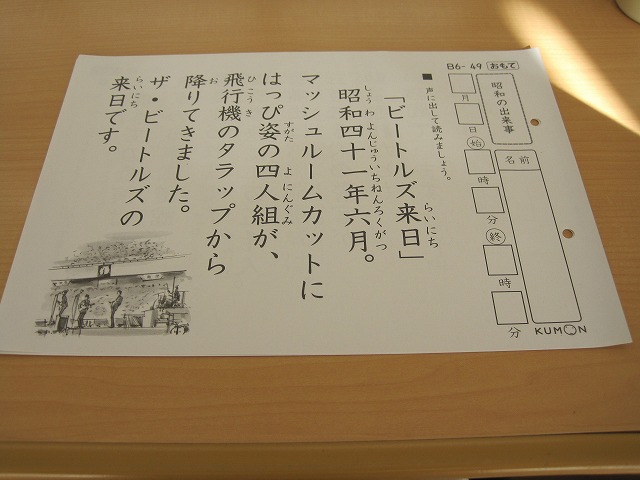 B6-49 おもて
昭和の出来事
名前
月
日
始
時
分
終
時
分
KUMON
■声に出して読みましょう。
「ビートルズ来日」
らいにち
昭和四十一年六月。
しょうわよんじゅういちねんろくがつ
マッシュルームカットに
はっぴ姿の四人組が、
すがた
よにんぐみ
飛行機のタラップから
ひこうき
降りてきました。
お
ザ・ビートルズの
来日です。
らいにち